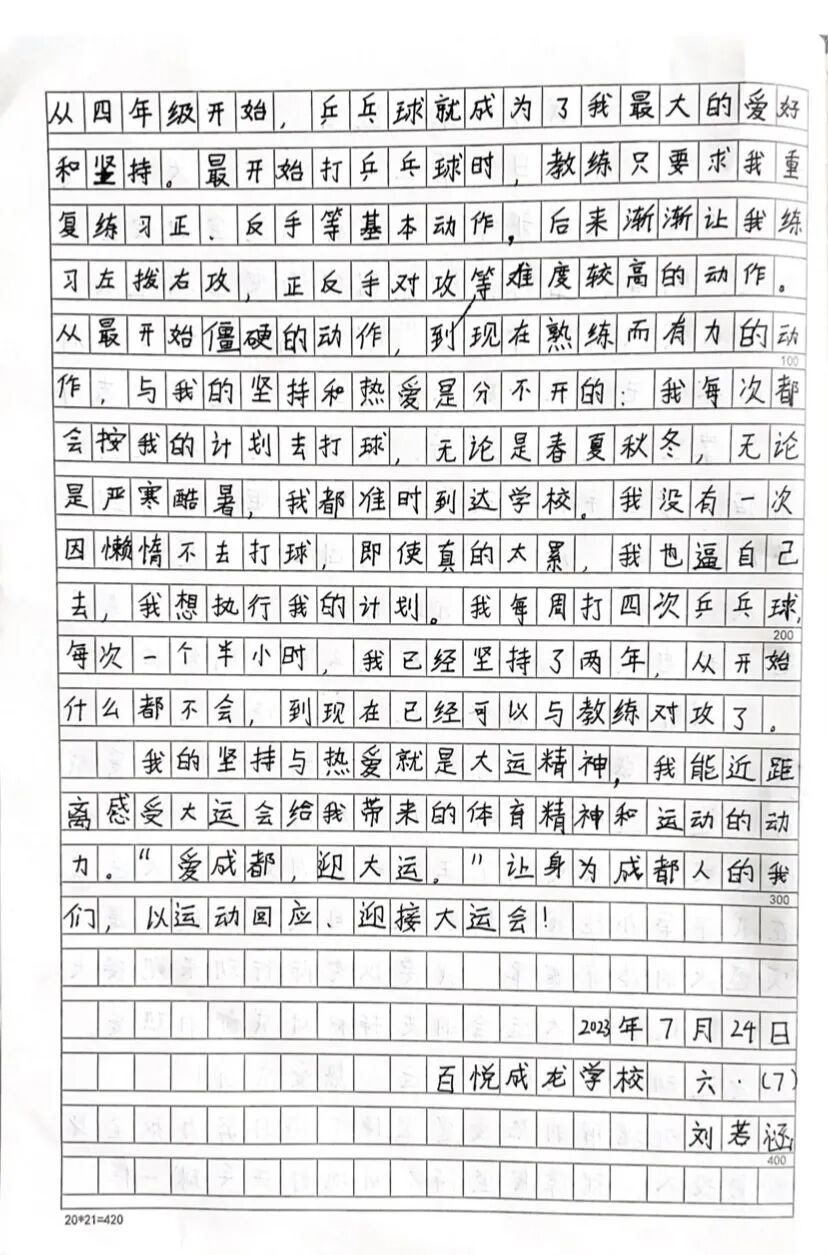 从四年级开始，乒乓球就成为了我最大的爱好
和坚持。最开始打乒乓球时，教练只要求我重
复练习正、反手等基本动作，后来渐渐让我练
习左拨右攻，正反手对攻等难度较高的动作。
从最开始僵硬的动作，到现在熟练而有力的动
100
作，与我的坚持和热爱是分不开的：我每次都
会按我的计划去打球，无论是春夏秋冬，无论
是严寒酷暑，我都准时到达学校。我没有一次
因懒惰不去打球，即使真的太累，我也逼自己
去，我想执行我的计划。我每周打四次乒乓球，
200
每次一个半小时，我已经坚持了两年，从开始
什么都不会，到现在已经可以与教练对攻了。
我的坚持与热爱就是大运精神，我能近距
离感受大运会给我带来的体育精神和运动的动
力。“爱成都，迎大运。”让身为成都人的我
300
们，以运动回应、迎接大运会！
2023年7月24日
百悦成龙学校 六·(7)
刘若涵
400
20*21=420